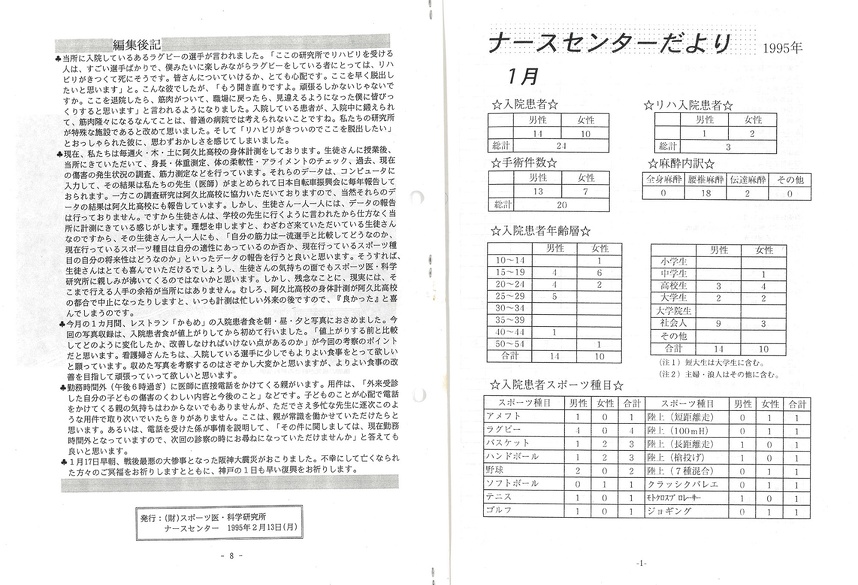 編集後記
♣当所に入院しているあるラグビーの選手が言われました。「ここの研究所でリハビリを受ける
人は、すごい選手ばかりで、僕みたいに楽しみながらラグビーをしている者にとっては、リハ
ビリがきつくて死にそうです。皆さんについていけるか、とても心配です。ここを早く脱出し
たいと思います」と。こんな彼でしたが、「もう開き直りですよ。頑張るしかないじゃないで
すか。ここを退院したら、筋肉がついて、職場に戻ったら、見違えるようになった僕に皆びっ
くりすると思います」と言われるようになりました。入院している患者が、入院中に鍛えられ
て、筋肉隆々になるなんてことは、普通の病院では考えられないことですね。私たちの研究所
が特殊な施設であると改めて思いました。そして「リハビリがきついのでここを脱出したい」
とおっしゃられた彼に、思わずおかしさを感じてしまいました。
♣現在、私たちは毎週火・木・土に阿久比高校の身体計測をしております。生徒さんに授業後、
当所にきていただいて、身長・体重測定、体の柔軟性・アライメントのチェック、過去、現在
の傷害の発生状況の調査、筋力測定などを行っています。それらのデータは、コンピュータに
入力して、その結果は私たちの先生（医師）がまとめられて日本自転車振興会に毎年報告して
おられます。一方この調査研究は阿久比高校に協力いただいておりますので、当然それらのデ
ータの結果は阿久比高校にも報告しています。しかし、生徒さん一人一人には、データの報告
は行っておりません。ですから生徒さんは、学校の先生に行くように言われたから仕方なく当
所に計測にきている感じがします。理想を申しますと、わざわざ来ていただいている生徒さん
なのですから、その生徒さん一人一人にも、「自分の筋力は一流選手と比較してどうなのか、
現在行っているスポーツ種目は自分の適性にあっているのか否か、現在行っているスポーツ種
目の自分の将来性はどうなのか」といったデータの報告を行うと良いと思います。そうすれば、
生徒さんはとても喜んでいただけるでしょうし、生徒さんの気持ちの面でもスポーツ医・科学
研究所に親しみが沸いてくるのではないかと思います。しかし、残念なことに、現実には、そ
こまで行える人手の余裕が当所にはありません。むしろ、阿久比高校の身体計測が阿久比高校
の都合で中止になったりしますと、いつも計測は忙しい外来の後ですので、『良かった』と喜
んでしまうのです。
♣今月の１カ月間、レストラン「かもめ」の入院患者食を朝・昼・夕と写真におさめました。今
回の写真収録は、入院患者食が値上がりしてから初めて行いました。「値上がりする前と比較
してどのように変化したか、改善しなければいけない点があるのか」が今回の考察のポイント
だと思います。看護婦さんたちは、入院している選手に少しでもよりよい食事をとって欲しい
と願っています。収めた写真を考察するのはさぞかし大変かと思いますが、よりよい食事の改
善を目指して頑張っていって欲しいと思います。
♣勤務時間外（午後６時過ぎ）に医師に直接電話をかけてくる親がいます。用件は、「外来受診
した自分の子どもの傷害のくわしい内容と今後のこと」などです。子どものことが心配で電話
をかけてくる親の気持ちはわからないでもありませんが、ただでさえ多忙な先生に逐次このよ
うな用件で取り次いでいたらきりがありません。ここは、親が常識を働かせていただけたらと
思います。あるいは、電話を受けた係が事情を説明して、「その件に関しましては、現在勤務
時間外となっていますので、次回の診察の時にお尋ねになっていただけませんか」と答えても
良いと思います。
♣１月17日早朝、戦後最悪の大惨事となった阪神大震災がおこりました。不幸にして亡くなられ
た方々のご冥福をお祈りしますとともに、神戸の１日も早い復興をお祈りします。
発行：(財)スポーツ医・科学研究所
ナースセンター 1995年２月13日(月)
- 8 -
ナースセンターだより 1995年
1月
☆入院患者☆
男性 女性
14 10
総計 24
☆リハ入院患者☆
男性 女性
1 2
総計 3
☆手術件数☆
男性 女性
13 7
総計 20
☆麻酔内訳☆
全身麻酔 腰椎麻酔 伝達麻酔 その他
0 18 2 0
☆入院患者年齢層☆
男性 女性
10～14 1
15～19 4 6
20～24 4 2
25～29 5
30～34
35～39
40～44 1
50～54 1
合計 14 10
男性 女性
小学生
中学生 1
高校生 3 4
大学生 2 2
大学院生
社会人 9 3
その他
合計 14 10
(注１) 短大生は大学生に含む。
(注２) 主婦・浪人はその他に含む。
☆入院患者スポーツ種目☆
スポーツ種目 男性 女性 合計 スポーツ種目 男性 女性 合計
アメフト 1 0 1 陸上（短距離走） 0 1 1
ラグビー 4 0 4 陸上（100mH） 0 1 1
バスケット 1 2 3 陸上（長距離走） 1 0 1
ハンドボール 1 2 3 陸上（槍投げ） 1 0 1
野球 2 0 2 陸上（７種混合） 0 1 1
ソフトボール 0 1 1 クラッシックバレエ 0 1 1
テニス 1 0 1 ﾓﾄｸﾛｽﾌﾟﾛﾚｰｻｰ 1 0 1
ゴルフ 1 0 1 ジョギング 0 1 1
-1-